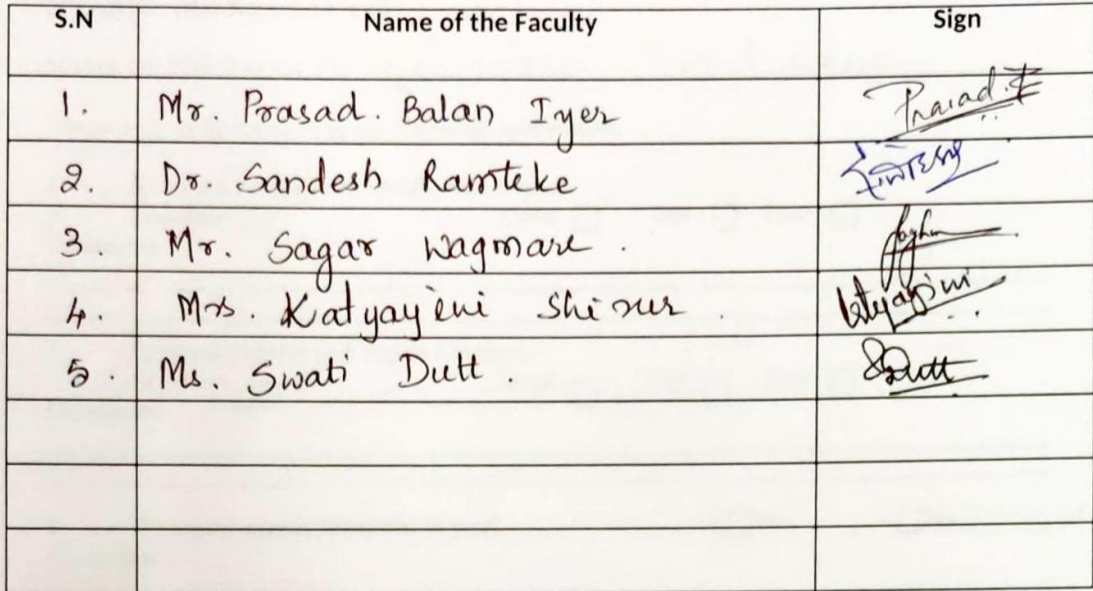 S.N Name of the Faculty Sign
1. Mr. Prasad. Balan Iyer Prasad
2. Dr. Sandesh Ramteke
3. Mr. Sagar Wagmare.
4. Mrs. Katyayini Shirur. Katyayini
5. Ms. Swati Dutt. SDutt